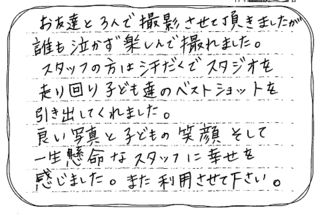 お友達と3人で撮影させて頂きましたが
誰も泣かず楽しんで撮れました。
スタッフの方は汗だくでスタジオを
走り回り子ども達のベストショットを
引き出してくれました。
良い写真と子どもの笑顔そして
一生懸命なスタッフに幸せを
感じました。また利用させて下さい。